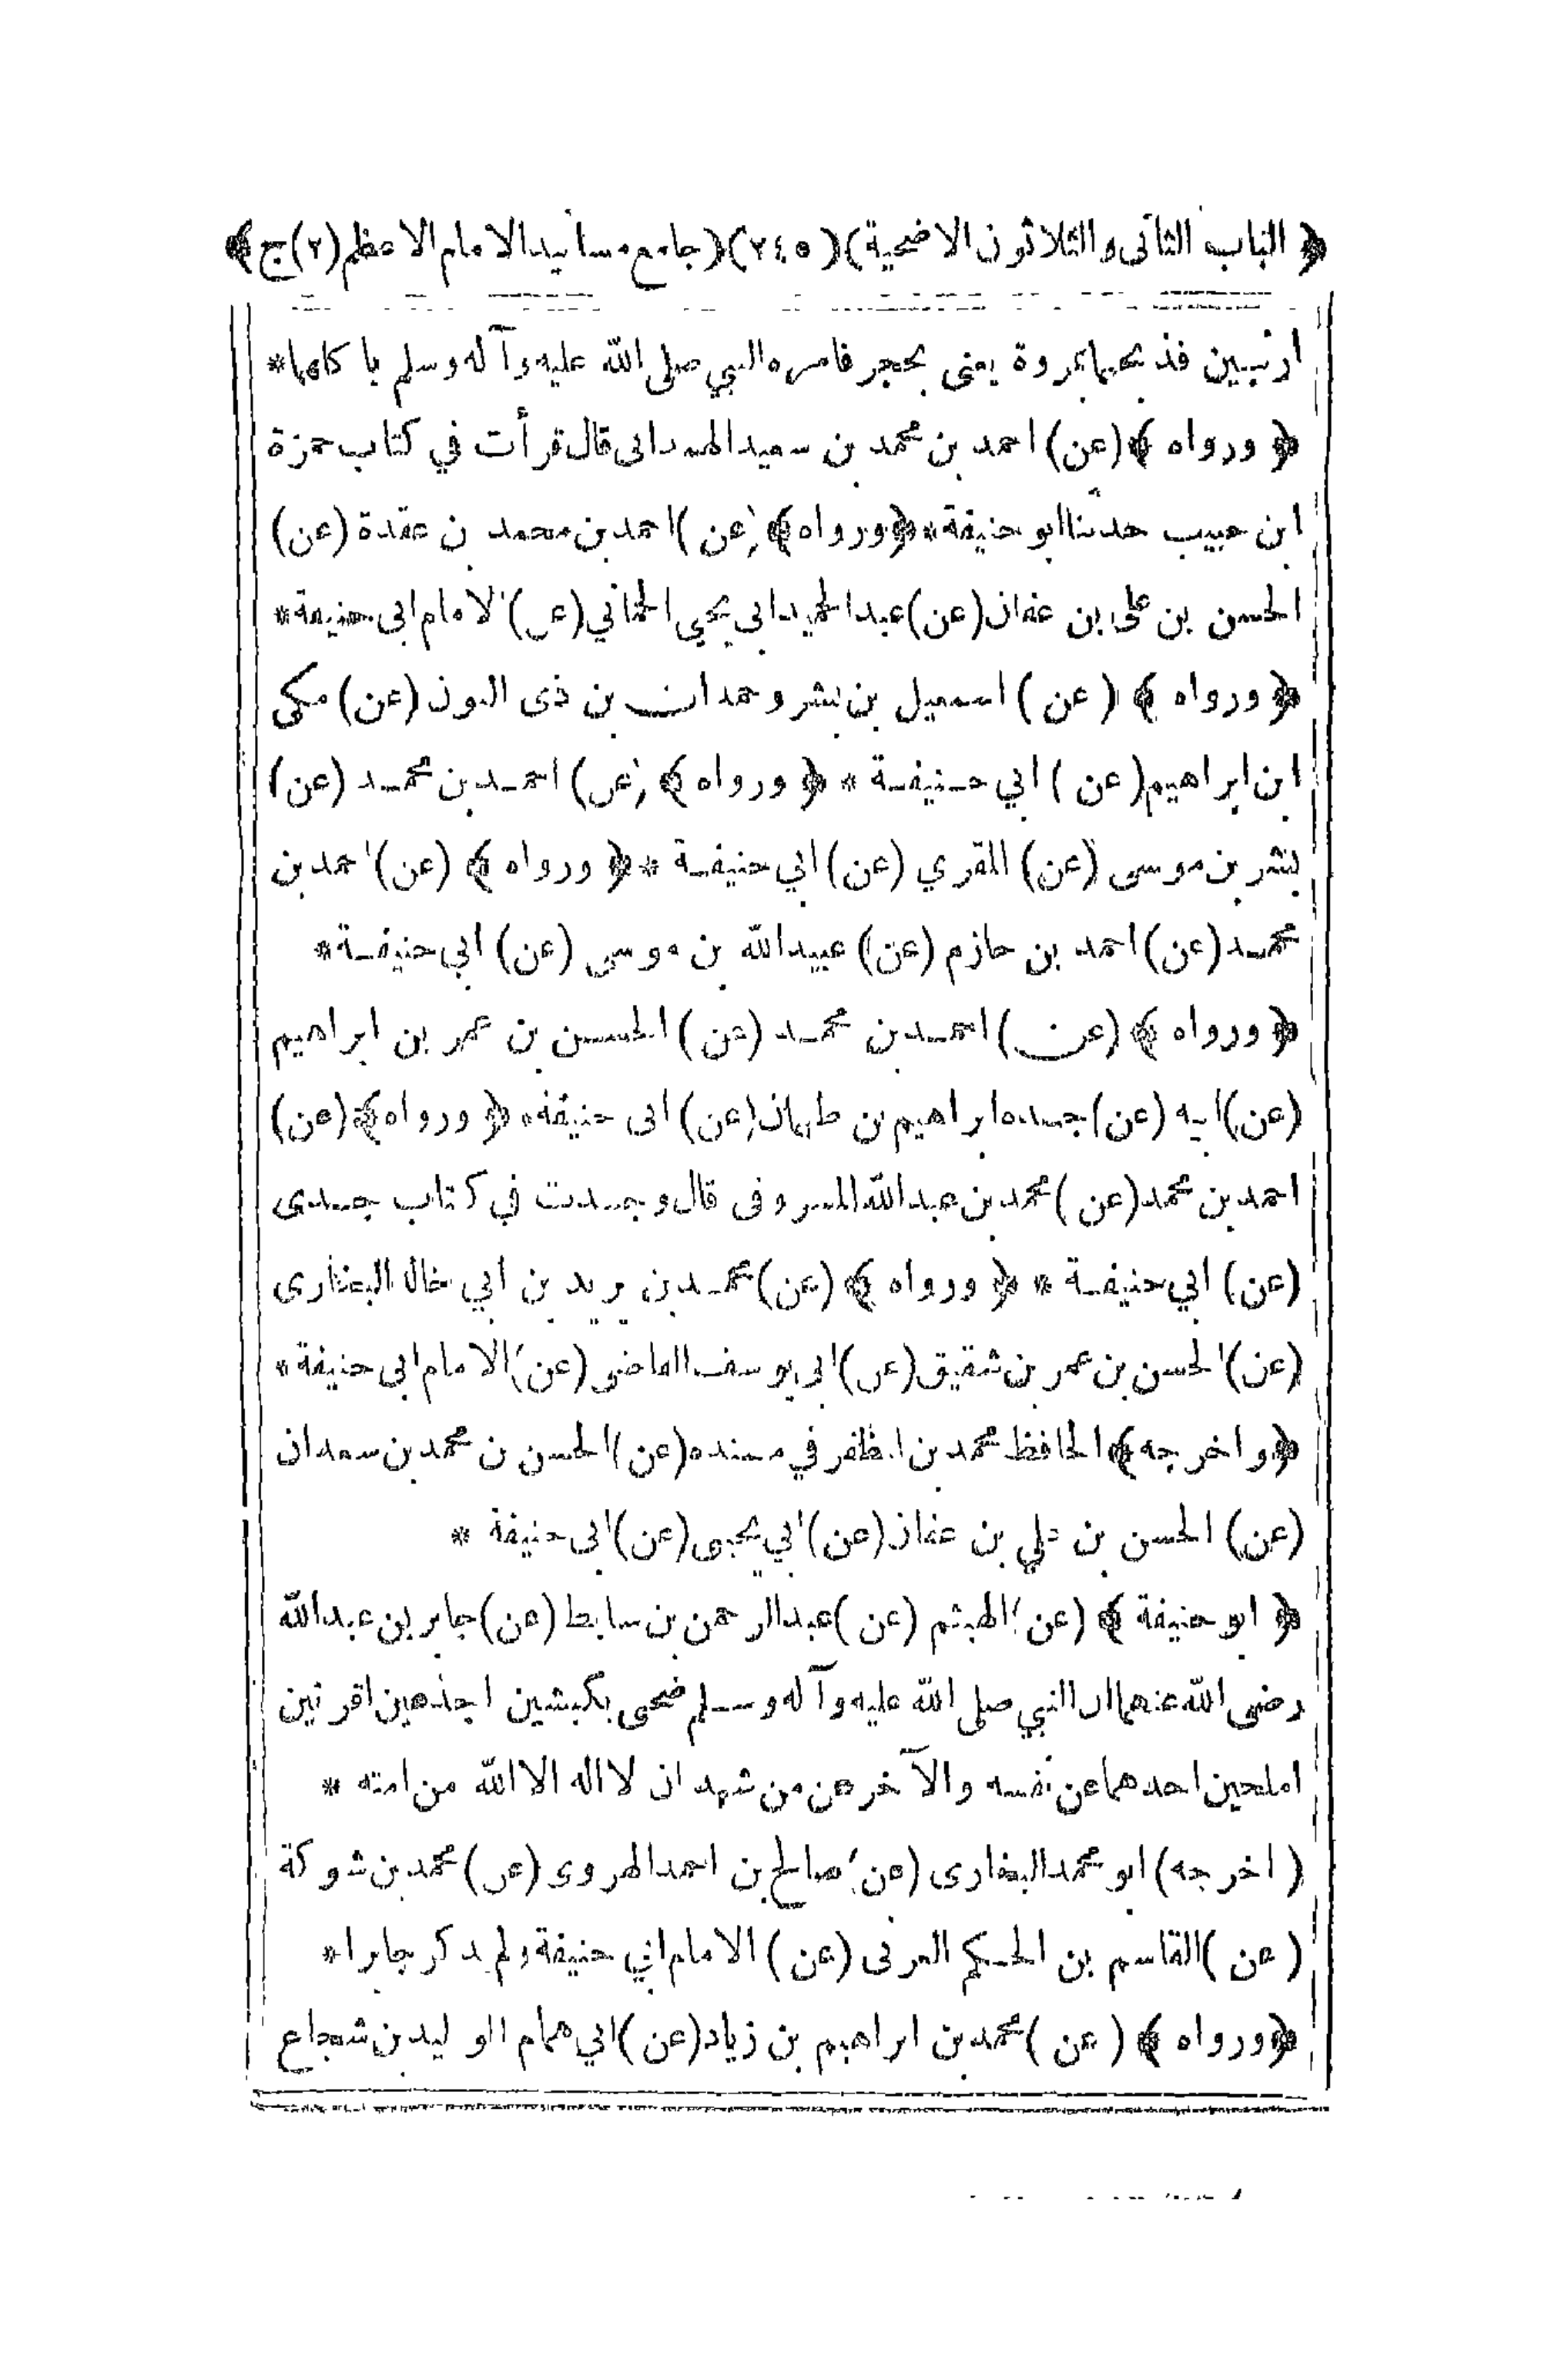 ﴿ الباب الثانى والثلاثون الاضحية ﴾ ( ٢٤٥ ) ﴿ جامع مسانيد الامام الاعظم (٢) ج ﴾
ارنبين فذبحهما بمروة يعنى بحجر فامره النبي صلى الله عليه وآله وسلم باكلهما *
﴿ ورواه ﴾ (عن) احمد بن محمد بن سعيد الهمدانى قال قرأت في كتاب حمزة
ابن حبيب حدثنا ابو حنيفة * ﴿ ورواه ﴾ (عن) احمد بن محمد بن عقدة (عن)
الحسن بن على بن عفان (عن) عبد الحميد ابي يحيى الحماني (عن) الامام ابى حنيفة *
﴿ ورواه ﴾ (عن) اسمعيل بن بشر وحمدان بن ذى النون (عن) مكى
ابن ابراهيم (عن) ابي حنيفة * ﴿ ورواه ﴾ (عن) احمد بن محمد (عن)
بشر بن موسى (عن) المقري (عن) ابي حنيفة * ﴿ ورواه ﴾ (عن) احمد بن
محمد (عن) احمد بن حازم (عن) عبيد الله بن موسى (عن) ابي حنيفة *
﴿ ورواه ﴾ (عن) احمد بن محمد (عن) الحسن بن عمر بن ابراهيم
(عن) ابيه (عن) جده ابراهيم بن طهمان (عن) ابى حنيفة * ﴿ ورواه ﴾ (عن)
احمد بن محمد (عن) محمد بن عبد الله المسروقى قال وجدت في كتاب جدى
(عن) ابي حنيفة * ﴿ ورواه ﴾ (عن) محمد بن يزيد بن ابي خالد البخارى
(عن) الحسن بن عمر بن شقيق (عن) ابى يوسف القاضى (عن) الامام ابى حنيفة *
﴿ واخرجه ﴾ الحافظ محمد بن المظفر في مسنده (عن) الحسن بن محمد بن سعدان
(عن) الحسن بن علي بن عفان (عن) ابي يحيى (عن) ابى حنيفة *
﴿ ابو حنيفة ﴾ (عن) الهيثم (عن) عبد الرحمن بن سابط (عن) جابر بن عبد الله
رضى الله عنهما ان النبي صلى الله عليه وآله وسلم ضحى بكبشين اجذعين اقرنين
املحين احدهما عن نفسه والآخر عن من شهد ان لا اله الا الله من امته *
( اخرجه ) ابو محمد البخارى (عن) صالح بن احمد الهروى (عن) محمد بن شوكة
(عن) القاسم بن الحكم العرنى (عن) الامام ابي حنيفة ولم يذكر جابرا *
﴿ ورواه ﴾ (عن) محمد بن ابراهيم بن زياد (عن) ابي همام الوليد بن شجاع